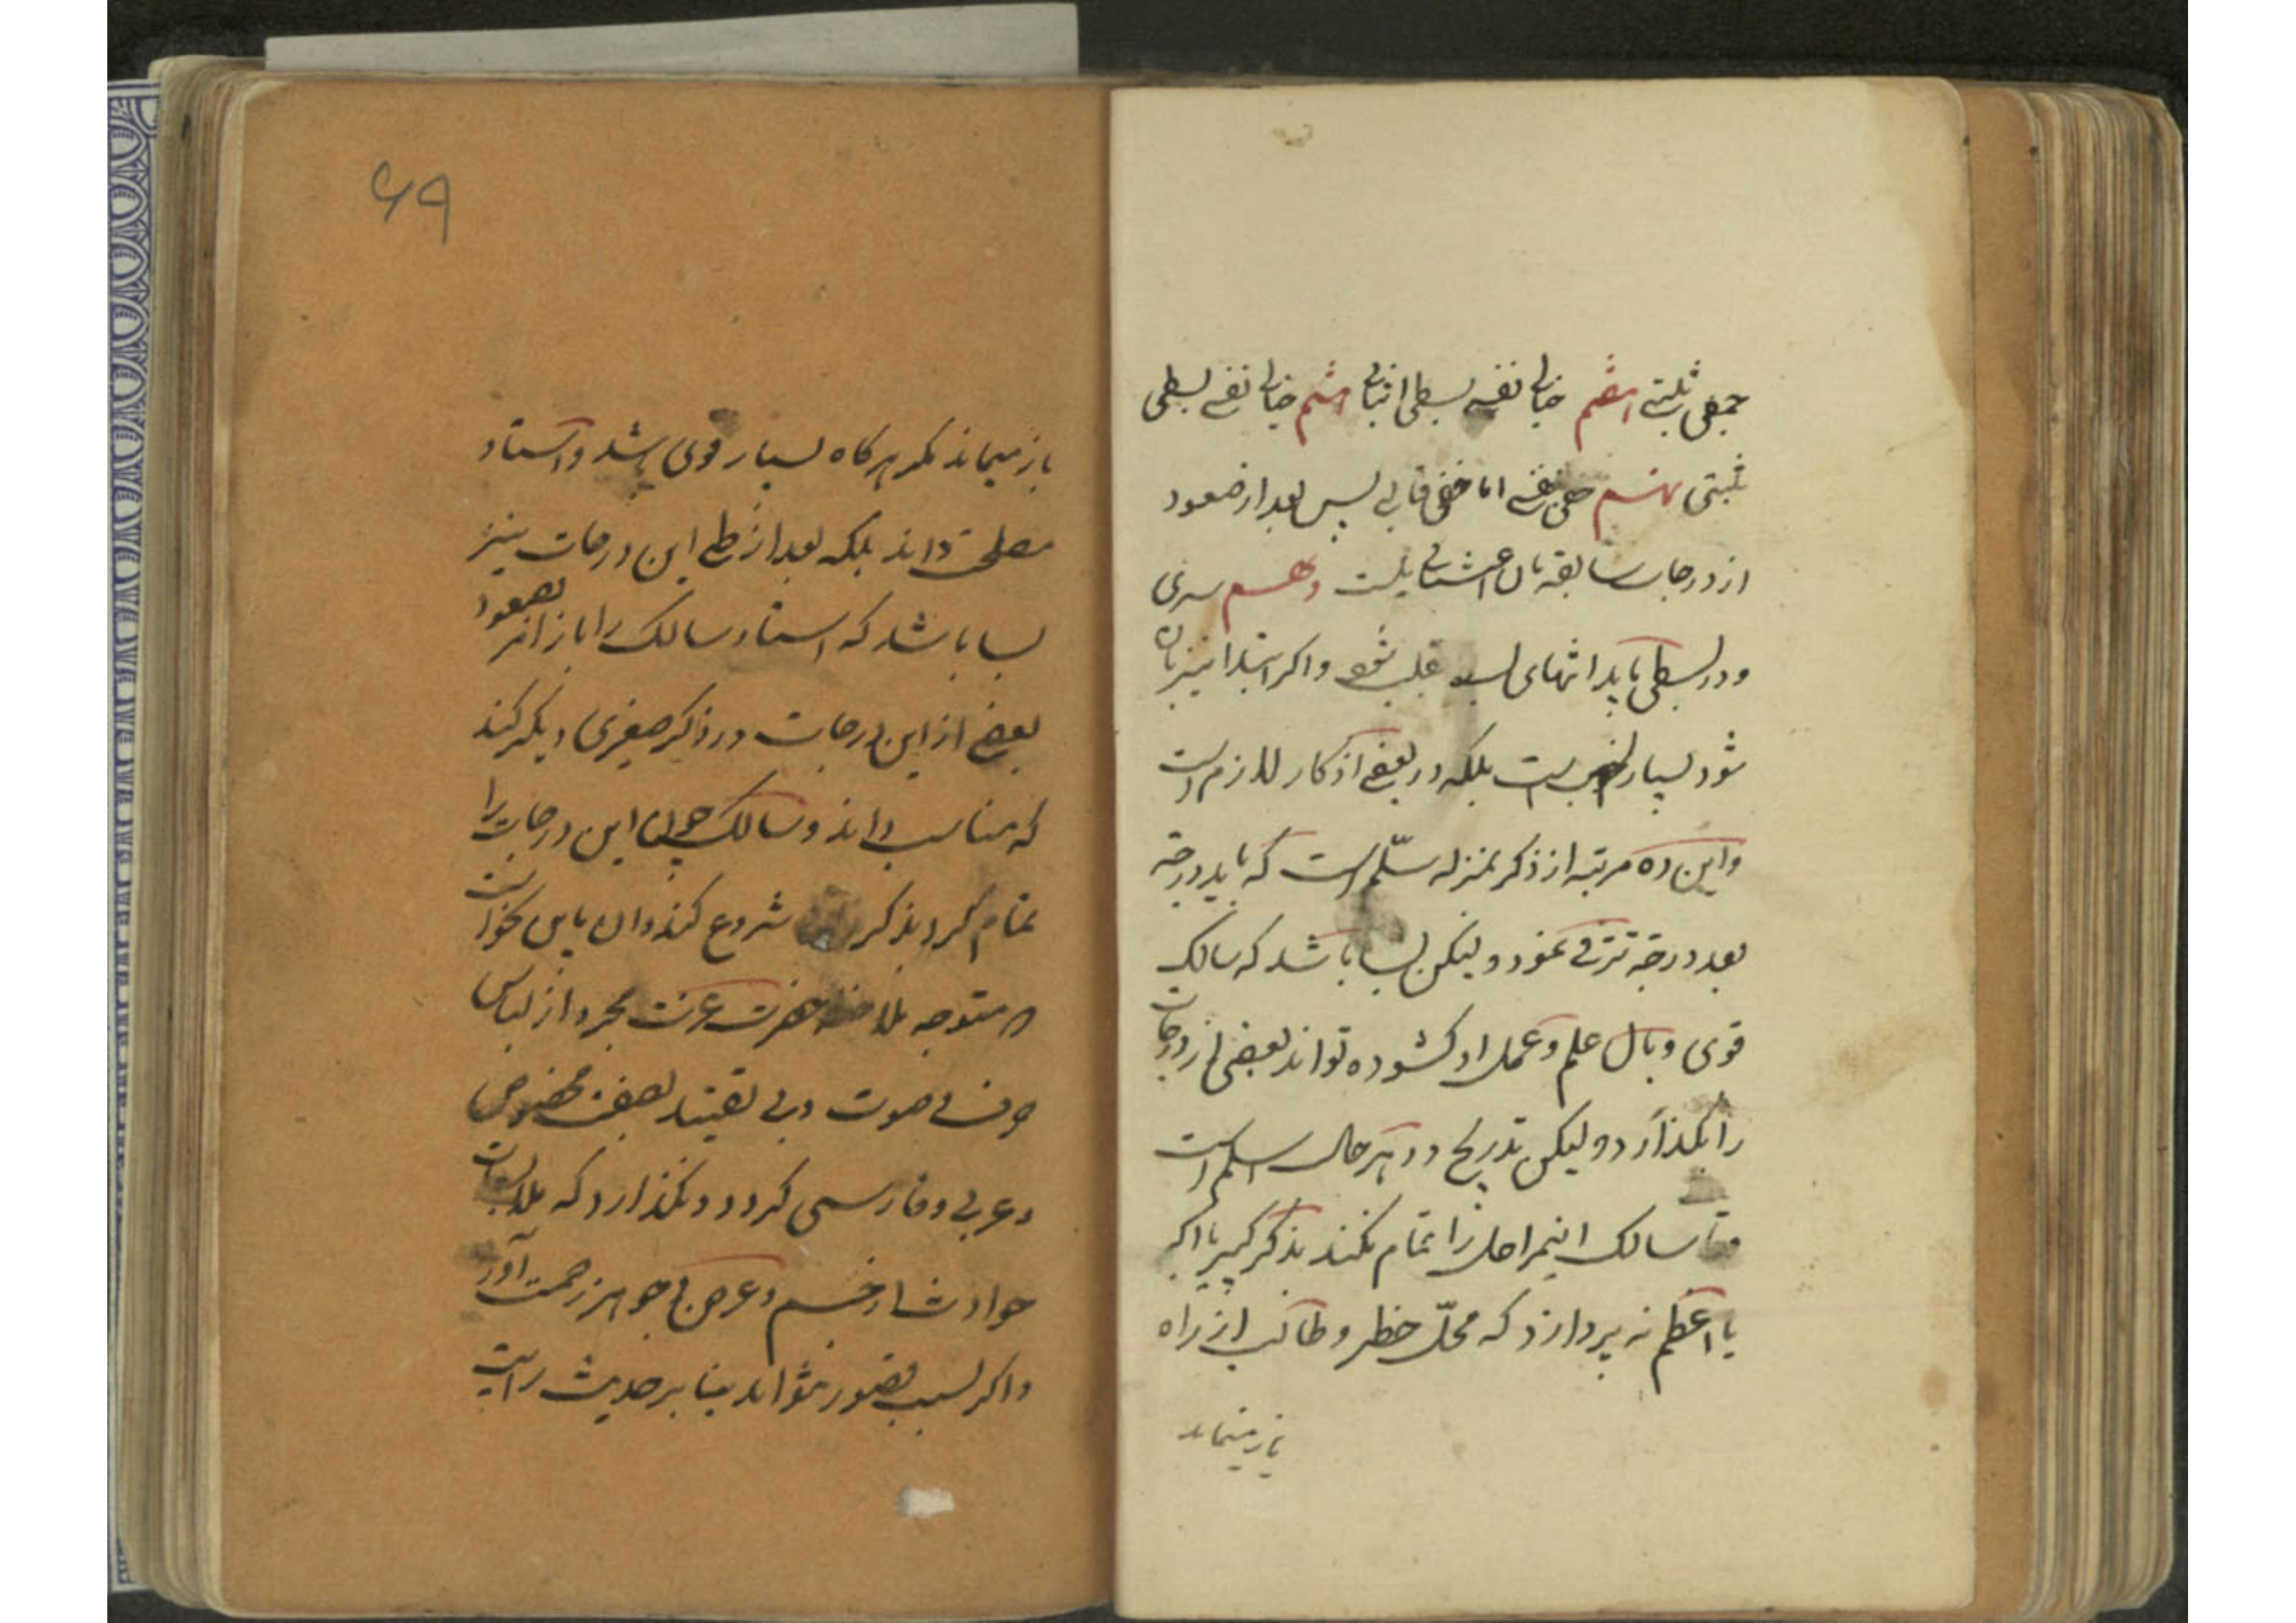 جمعی ثبتی هفتم خیالی نفسی بسطی اثباتی هشتم خیالی نفسی بسطی
ثبتی نهم خفی نفسی اما خفی قالبی پس بعد از صعود
از درجات سابقه بآن اعتنائی نیست دهم سری
و در بسطی باید انتهای بسط قلب شود و اگر ابتدا نیز بآن
شود بسیار خوب است بلکه در بعضی اذکار لازم است
و این ده مرتبه از ذکر بمنزله سلّم است که باید درجه
بعد درجه ترقی نمود و لیکن بسا باشد که سالک
قوی و بال علم و عمل او گشوده تواند بعضی از درجات
را بگذارد و لیکن تدریج در هر حال اسلم است
و تا سالک اینمراحل را تمام نکند بذکر کبیر یا اکبر
یا اعظم نه پردازد که محلّ خطر و طالب از راه
باز میماند
۶۹
باز میماند مگر هرگاه بسیار قوی باشد و استاد
مصلحت داند بلکه بعد از طی این درجات نیز
بسا باشد که استاد سالک را باز امر بصعود
بعضی از این درجات در ذکر صغیری دیگر کند
که مناسب داند و سالک چون این درجات را
تمام کرد بذکر شروع کند و آن باین نحو است
که متوجه ملاحظه حضرت عزت مجرد از لباس
حرف و صوت و بی تقیید بصفت مخصوص
و عربی و فارسی گردد و نگذارد که ملابسات
حوادث از جسم و عرض و جوهر زحمت آورد
و اگر بسبب قصور نتواند بنا بر حدیث رایت